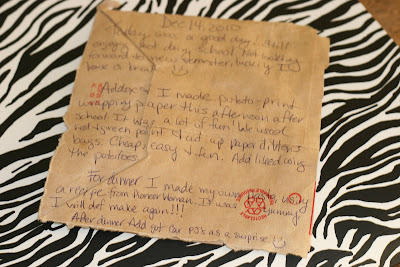 Dec 14, 2010
Today was a good day. Still
enjoying last day school. Not looking
forward to new semester, luckily I'll
have a break
Addox & I made potato-print
wrapping paper this afternoon after
school. It was a lot of fun! We used
red & green paint & cut up paper
bags. Cheap, easy & fun. Add liked
the potatoes.
For dinner I made my own using
a recipe from Pioneer Woman. It was yummy
I will def make again!!!
After dinner Add got our PJs as a surprise!